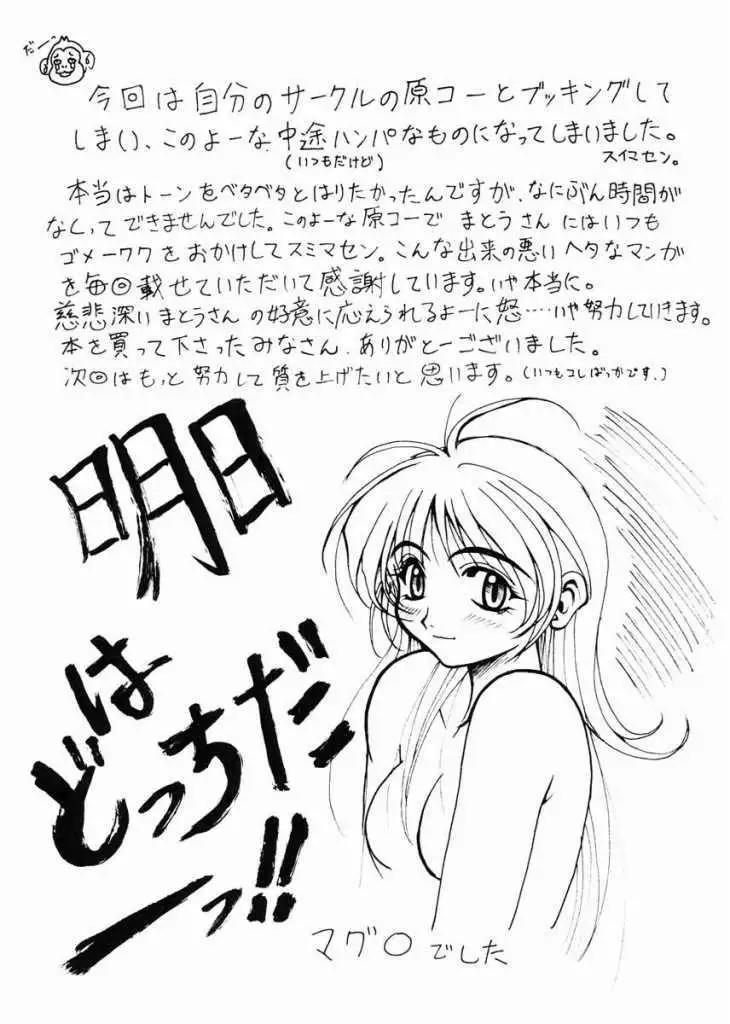 だー
今回は自分のサークルの原コーとブッキングして
しまい、このよーな中途ハンパなものになってしまいました。
(いつもだけど)
スイマセン。
本当はトーンをベタベタとはりたかったんですが、なにぶん時間が
なくってできませんでした。このよーな原コーで まとうさん にはいつも
ゴメーワクをおかけしてスミマセン。こんな出来の悪いヘタなマンガ
を毎回載せていただいて感謝しています。いや本当に。
慈悲深いまとうさんの好意に応えられるよーに怒……いや努力していきます。
本を買って下さったみなさん、ありがとーございました。
次回はもっと努力して質を上げたいと思います。(いつもコレばっかです、)
明日
はどっちだ
ーッ!!
マグ○でした